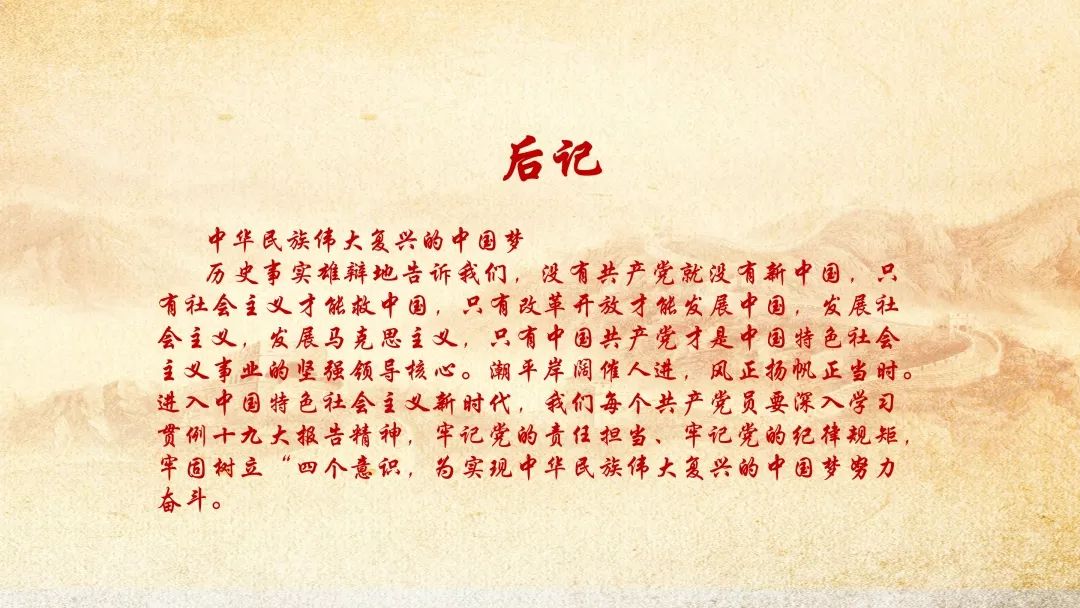 后记
中华民族伟大复兴的中国梦
历史事实雄辩地告诉我们，没有共产党就没有新中国，只
有社会主义才能救中国，只有改革开放才能发展中国，发展社
会主义，发展马克思主义，只有中国共产党才是中国特色社会
主义事业的坚强领导核心。潮平岸阔催人进，风正扬帆正当时。
进入中国特色社会主义新时代，我们每个共产党员要深入学习
贯例十九大报告精神，牢记党的责任担当、牢记党的纪律规矩，
牢固树立“四个意识，为实现中华民族伟大复兴的中国梦努力
奋斗。